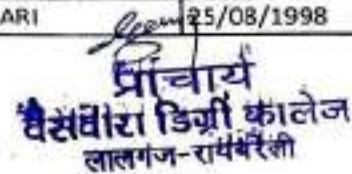 ARI 25/08/1998
प्राचार्य
बैसवारा डिग्री कालेज
लालगंज-रायबरेली